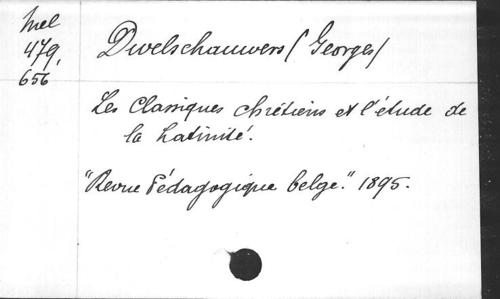 Mel
479,
656
Dwelschauwers (Georges)
Les Classiques chrétiens et l'étude de
la Latinité.
"Revue Pédagogique belge." 1895.